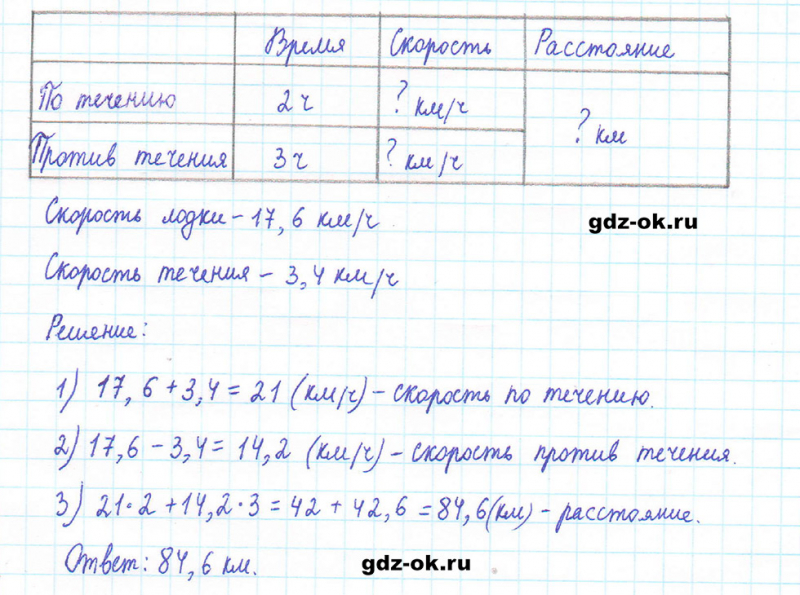 Время Скорость Расстояние
По течению 2 ч ? км/ч ? км
Против течения 3 ч ? км/ч
Скорость лодки – 17,6 км/ч
gdz-ok.ru
Скорость течения – 3,4 км/ч
Решение:
1) 17,6 + 3,4 = 21 (км/ч) – скорость по течению.
2) 17,6 – 3,4 = 14,2 (км/ч) – скорость против течения.
3) 21·2 + 14,2·3 = 42 + 42,6 = 84,6 (км) – расстояние.
Ответ: 84,6 км.
gdz-ok.ru